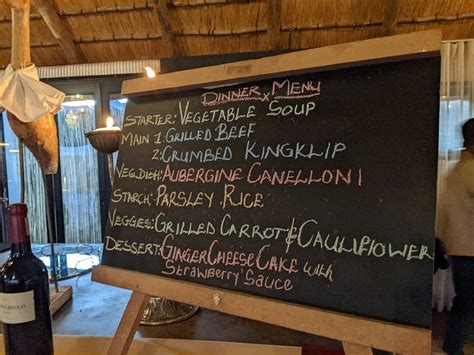 DINNER MENU
STARTER: VEGETABLE SOUP
MAIN 1: GRILLED BEEF
2: CRUMBED KINGKLIP
VEG.DISH: AUBERGINE CANELLONI
STARCH: PARSLEY RICE
VEGGES: GRILLED CARROT & CAULIFLOWER
DESSERT: GINGER CHEESE CAKE with
STRAWBERRY SAUCE